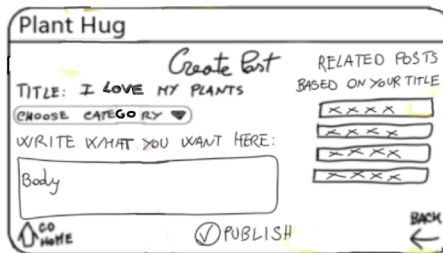 Plant Hug
Create Post
TITLE: I LOVE MY PLANTS
CHOOSE CATEGORY
WRITE WHAT YOU WANT HERE:
Body
RELATED POSTS
BASED ON YOUR TITLE
XXXX
XXXX
XXXX
XXXX
GO
HOME
PUBLISH
BACK